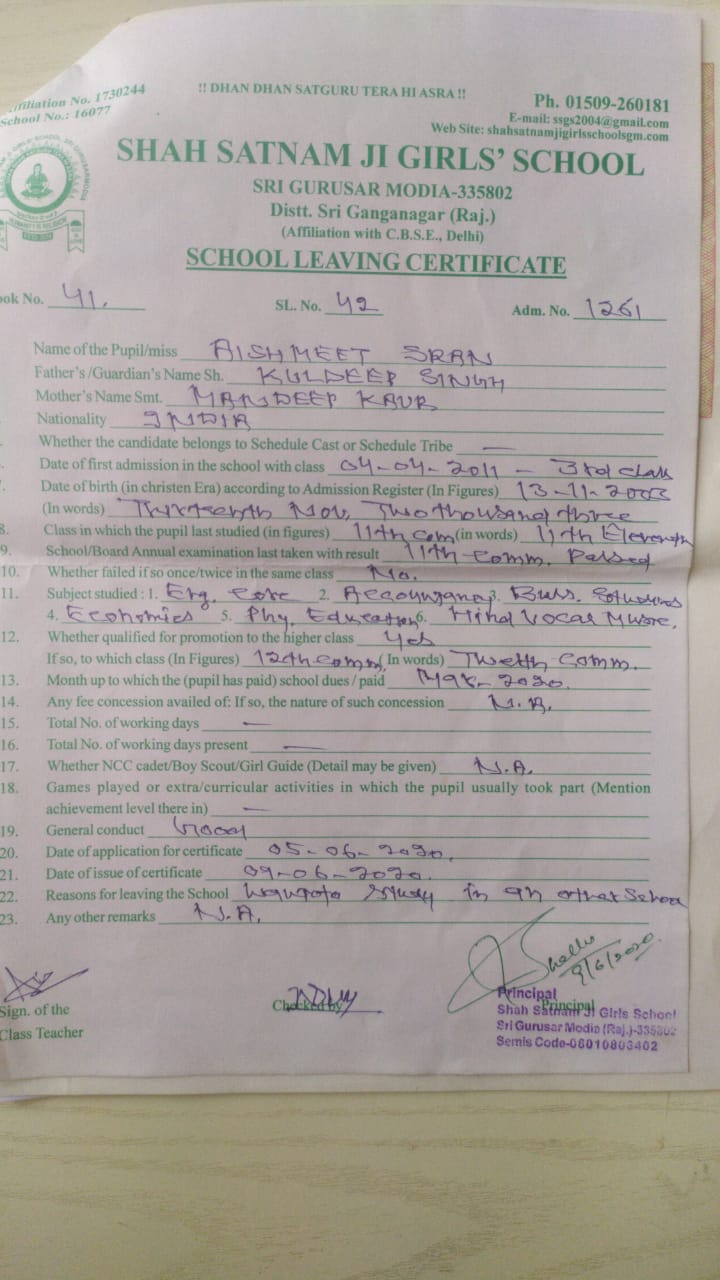 !! DHAN DHAN SATGURU TERA HI ASRA !!
Affiliation No. 1730244
School No.: 16077
Ph. 01509-260181
E-mail: ssgs2004@gmail.com
Web Site: shahsatnamjigirlsschoolsgm.com
SHAH SATNAM JI GIRLS' SCHOOL
SRI GURUSAR MODIA-335802
Distt. Sri Ganganagar (Raj.)
(Affiliation with C.B.S.E., Delhi)
SCHOOL LEAVING CERTIFICATE
ook No. 41. SL. No. 42 Adm. No. 1261
Name of the Pupil/miss AISHMEET SRAN
Father's /Guardian's Name Sh. KULDEEP SINGH
Mother's Name Smt. MANDEEP KAUR
Nationality INDIA
Whether the candidate belongs to Schedule Cast or Schedule Tribe —
Date of first admission in the school with class 04-04-2011 - 3rd class
Date of birth (in christen Era) according to Admission Register (In Figures) 13-11-2003
(In words) Thirteenth Nov, Two thousand three
8. Class in which the pupil last studied (in figures) 11th Com (in words) 11th Eleventh
9. School/Board Annual examination last taken with result 11th Comm. Passed
10. Whether failed if so once/twice in the same class No.
11. Subject studied : 1. Eng. Core 2. 3. Buss. Studies
4. Economics 5. Phy. Education 6. Hind Vocal Music.
12. Whether qualified for promotion to the higher class Yes
If so, to which class (In Figures) 12th Comm (In words) Twelth Comm.
13. Month up to which the (pupil has paid) school dues / paid Mar-2020.
14. Any fee concession availed of: If so, the nature of such concession N.A.
15. Total No. of working days —
16. Total No. of working days present —
17. Whether NCC cadet/Boy Scout/Girl Guide (Detail may be given) N.A.
18. Games played or extra/curricular activities in which the pupil usually took part (Mention
achievement level there in) —
19. General conduct Good
20. Date of application for certificate 05-06-2020.
21. Date of issue of certificate 09-06-2020.
22. Reasons for leaving the School study in an other School
23. Any other remarks N.A.
9/6/2020
Sign. of the
Class Teacher
Checked by
Principal
Principal
Shah Satnam Ji Girls School
Sri Gurusar Modia (Raj.)-335802
Semis Code-08010803402